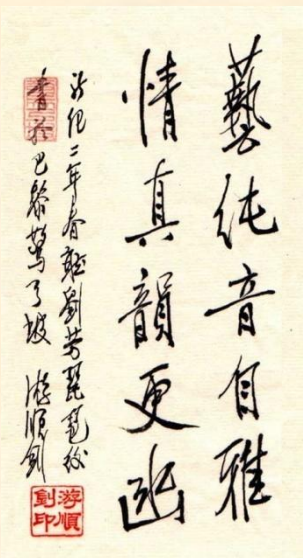 藝純音自雅
情真韻更幽
新紀二年春聽劉芳琵琶於
香於巴黎鷥了坡 游順釗
游順釗印